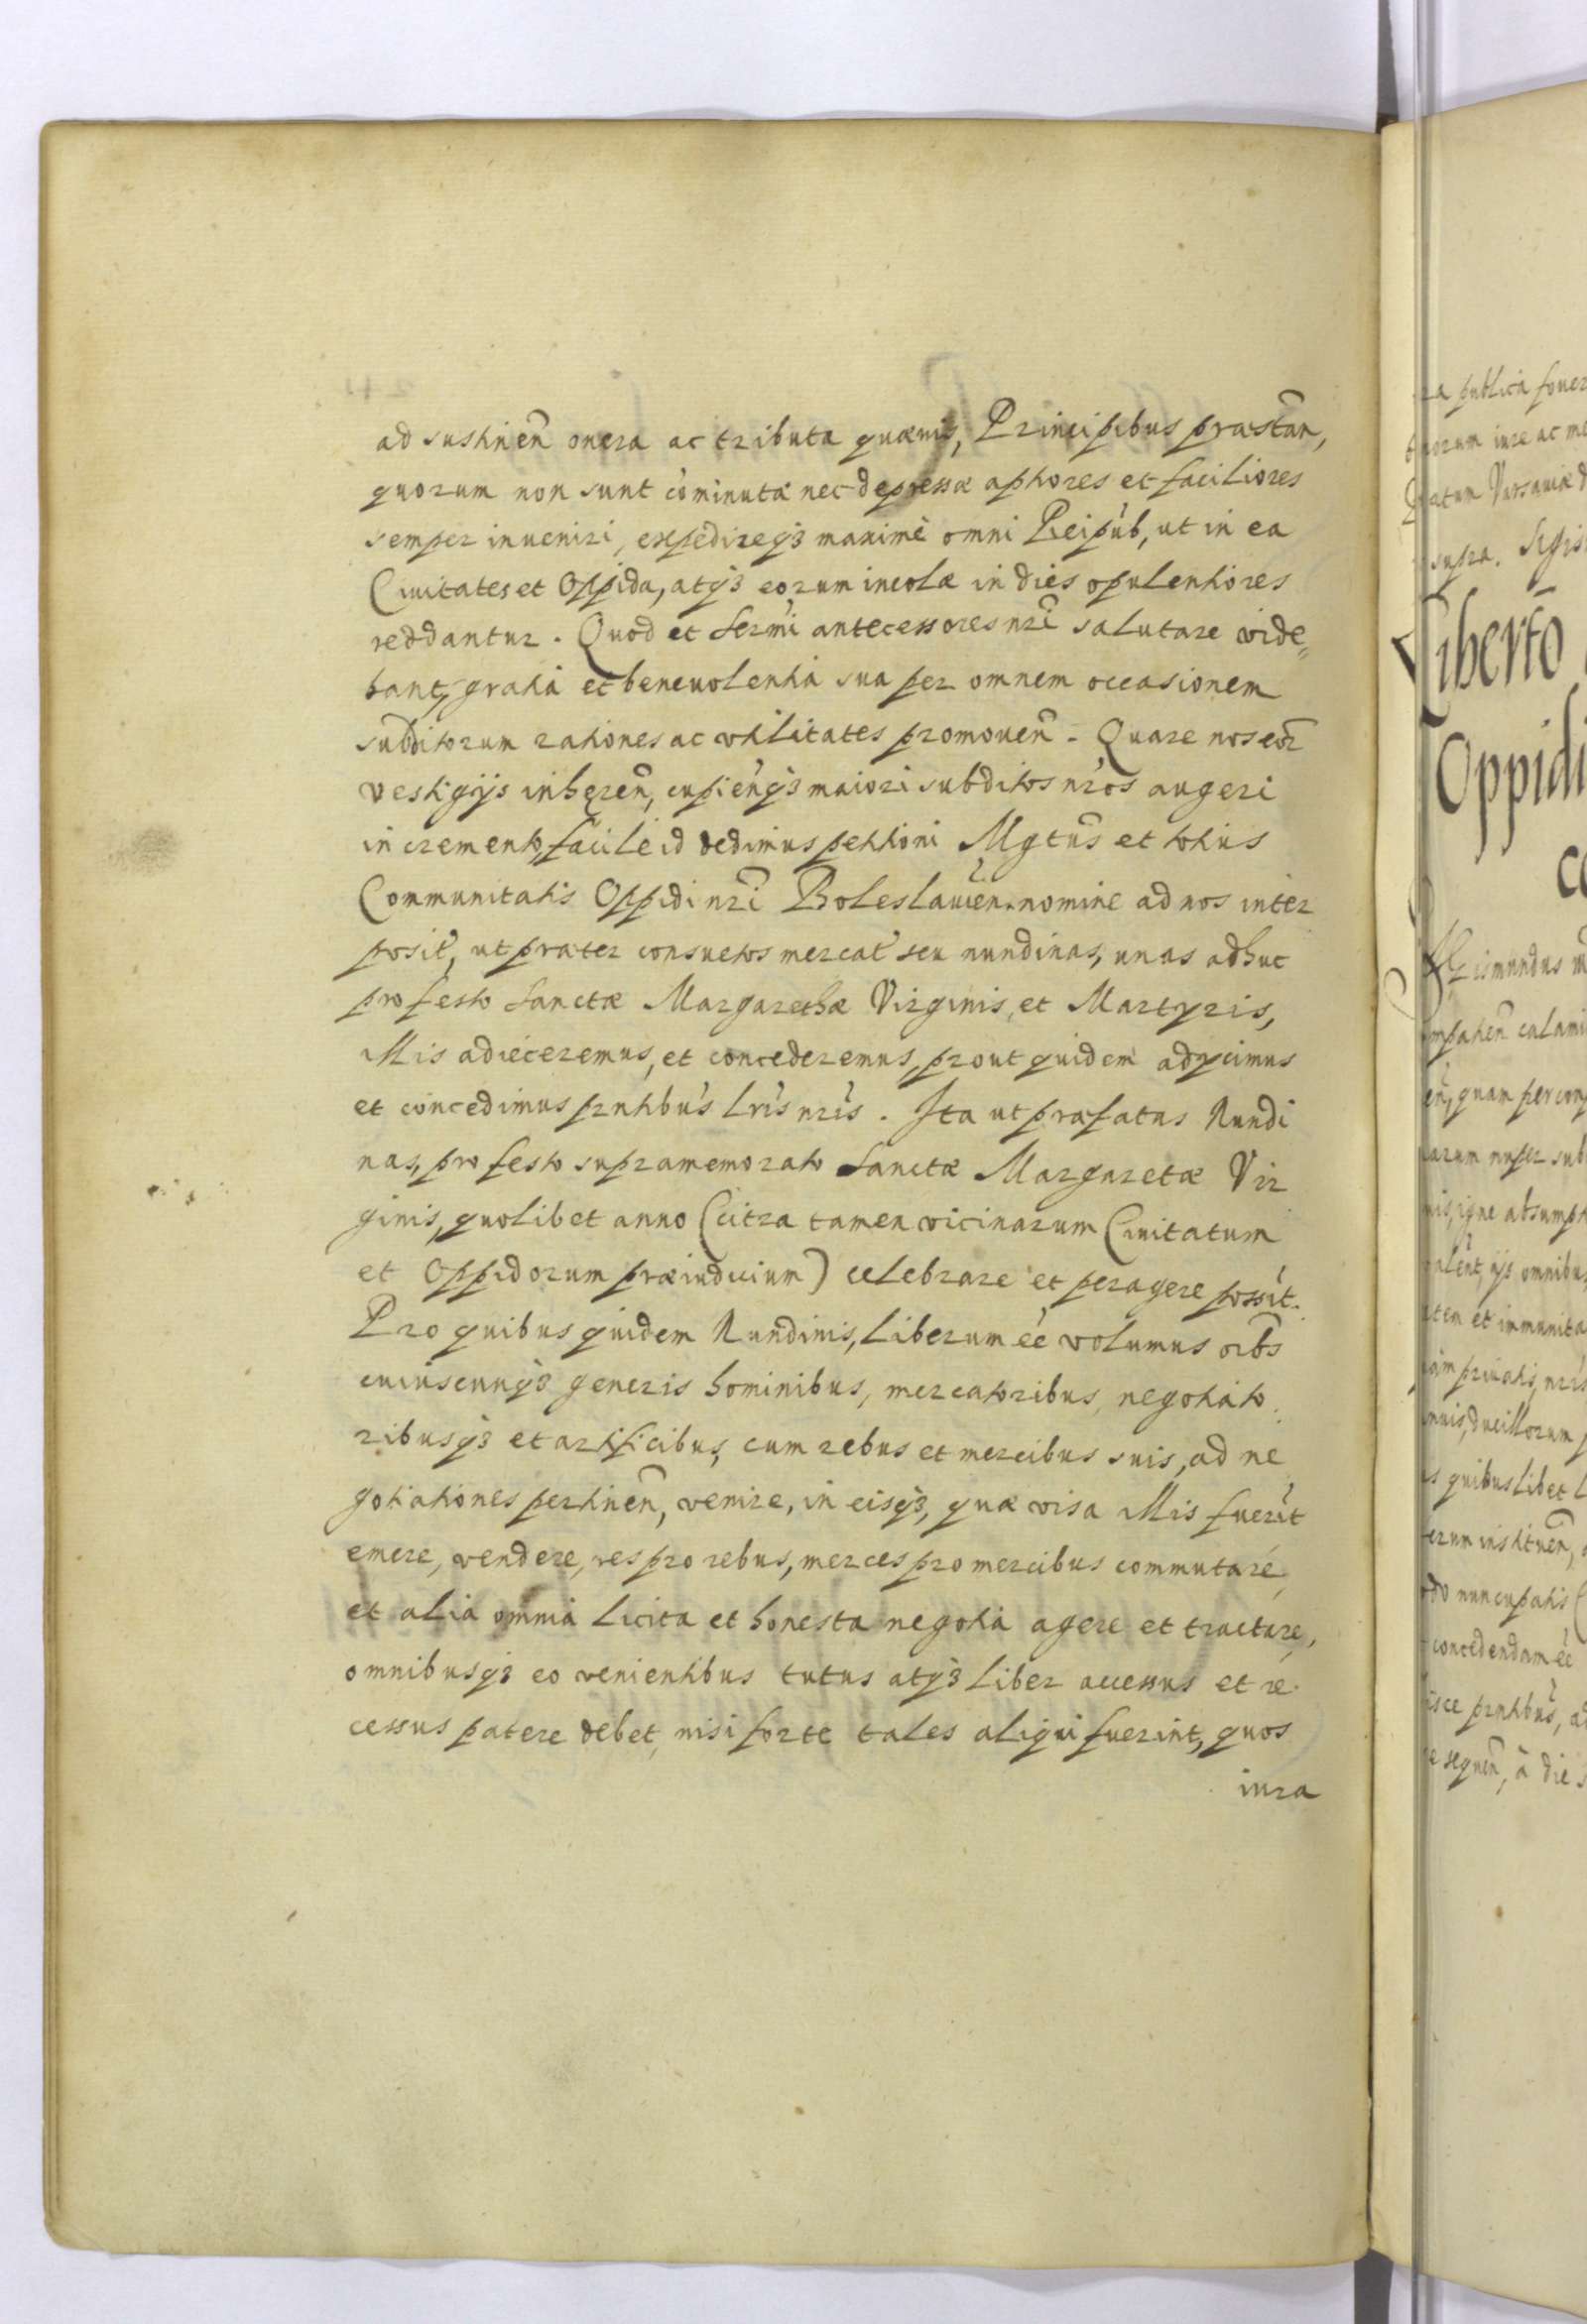 ad sustinen̄ onera ac tributa quævis, Principibus præstan̄,
quorum non sunt cōminutæ nec depressæ aptiores et faciliores
semper inveniri, expedireqз maximè omni Reipub, ut in ea
Civitates et Oppida, atqз eorum incolæ in dies opulentiores
reddantur. Quod et Serm̄i antecessores nr̄i salutare vide„
bant, gratia et benevolentia sua per omnem occasionem
subditorum rationes ac vtilitates promoven̄. Quare nos eor̄
vestigijs inheren̄, cupienqз maiori subditos nr̄os augeri
incremento, facile id dedimus petitioni Mgt̄us et totius
Communitatis Oppidi nr̄i Boleslavien. nomine ad nos inter
posit̄, ut præter consuetos mercat̄ seu nundinas, unas adhuc
pro festo Sanctæ Margarethæ Virginis, et Martyris,
Illis adieceremus, et concederemus, prout quidem adycimus
et concedimus pr̄ntibus lr̄is nr̄is. Ita ut præfatas Nundi
nas, pro festo supramemorato Sanctæ Margaretæ Vir
ginis, quolibet anno (citra tamen vicinarum Civitatum
et Oppidorum præiudicium) celebrare et peragere possit.
Pro quibus quidem Nundinis, liberum ēē volumus oīb̄s
cuiuscunqз generis hominibus, mercatoribus, negotiato
ribusqз et artificibus, cum rebus et mercibus suis, ad ne
gotiationes pertinen̄, venire, in eisqз, quæ visa Illis fuerit
emere, vendere, res pro rebus, merces pro mercibus commutare,
et alia omnia licita et honesta negotia agere et tractare,
omnibusqз eo venientibus tutus atqз liber accessus et re
cessus patere debet, nisi forte tales aliqui fuerint, quos
iura
ra publica fover
supra.
Liberto
Oppidi
igne absumpt
ijs omnibus
et immunita
quibus libet
concedendam ēē
à die